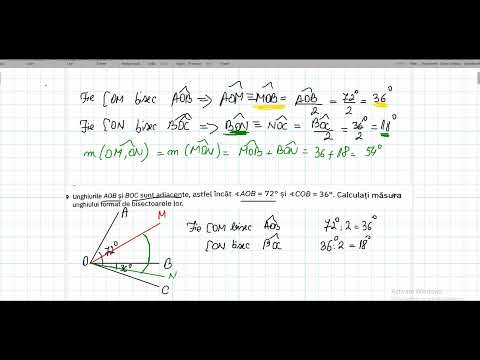 Fie [OM bisec AOB => AOM ≡ MOB = AOB/2 = 72°/2 = 36°
Fie [ON bisec BOC => BON ≡ NOC = BOC/2 = 36°/2 = 18°
m(OM,ON) = m(MON) = MOB + BON = 36 + 18 = 54°
9. Unghiurile AOB și BOC sunt adiacente, astfel încât ∢AOB = 72° și ∢COB = 36°. Calculați măsura
unghiului format de bisectoarele lor.
A
M
Fie [OM bisec AOB 72°:2 = 36°
[ON bisec BOC 36°:2 = 18°
72°
O
36°
B
N
C
Activare Windows